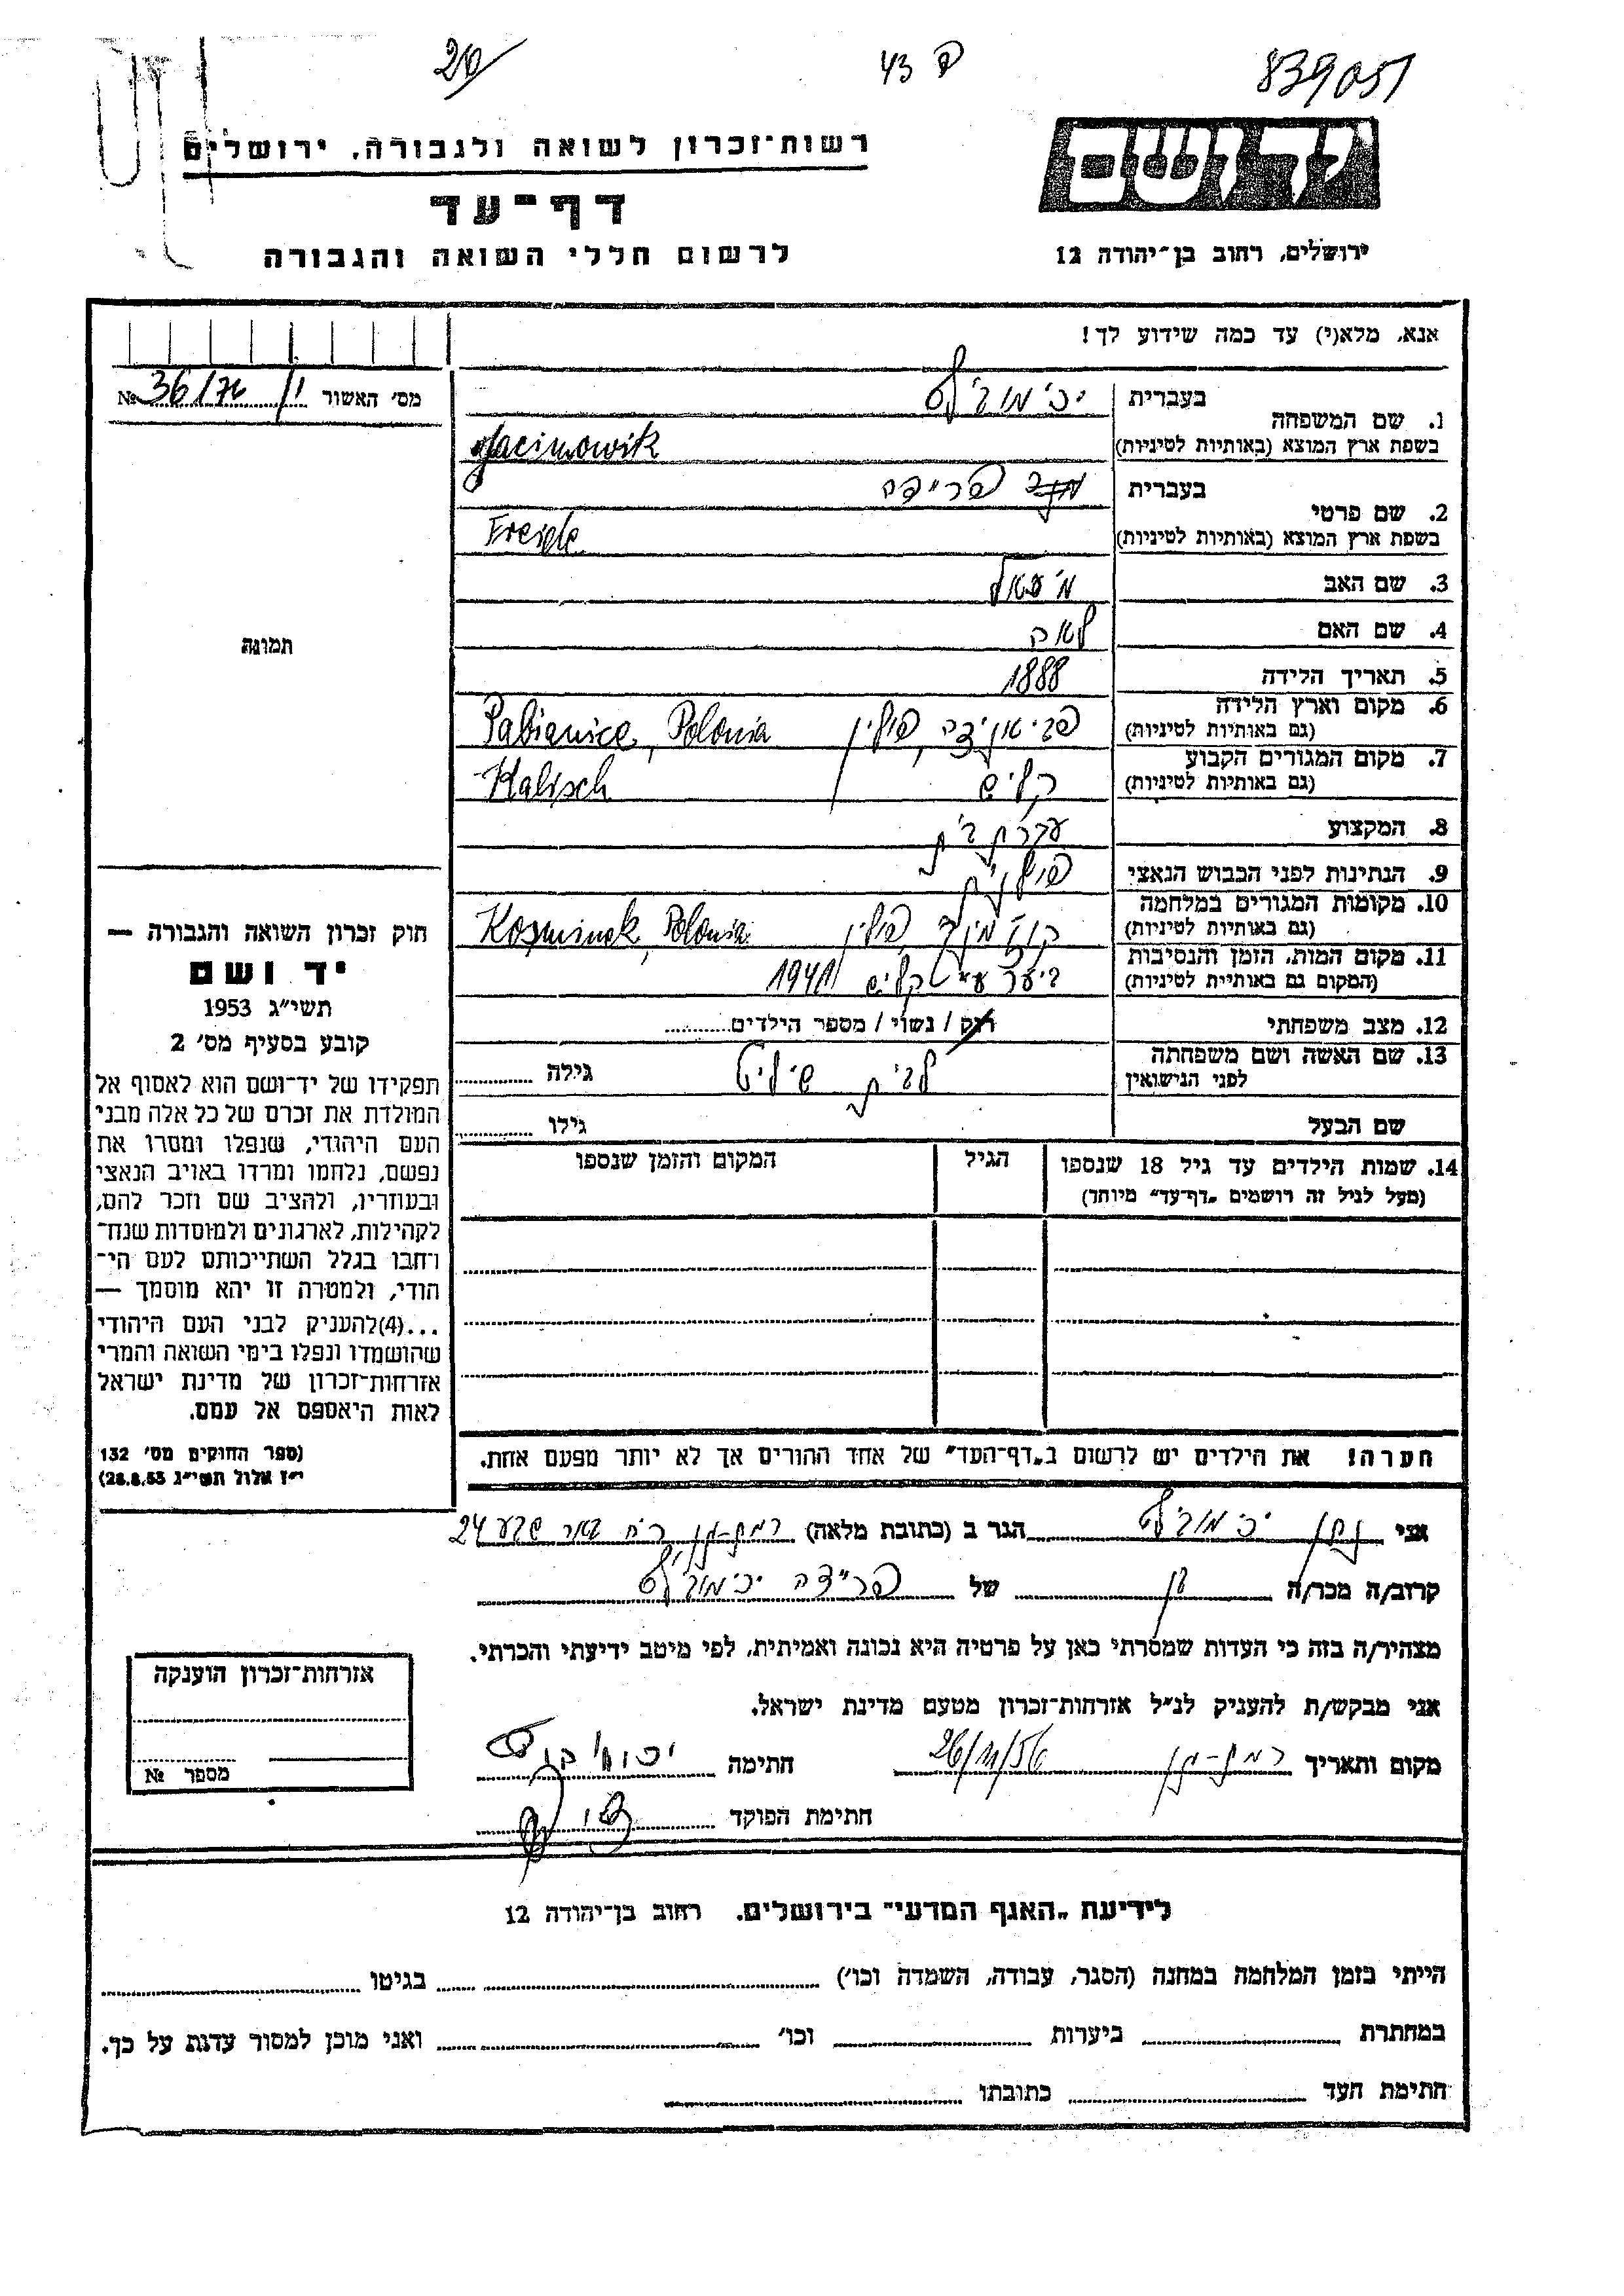 20
43 פ
839051
יד ושם
רשות־זכרון לשואה ולגבורה, ירושלים
דף־עד
ירושלים, רחוב בן־יהודה 12
לרשום חללי השואה והגבורה
אנא, מלא(י) עד כמה שידוע לך!
מס' האשור 36/76 №
1. שם המשפחה
בעברית
בשפת ארץ המוצא (באותיות לטיניות)
Jacimowik
2. שם פרטי
בעברית פרידה
בשפת ארץ המוצא (באותיות לטיניות)
Freide
3. שם האב
4. שם האם לאה
5. תאריך הלידה 1888
6. מקום וארץ הלידה
(גם באותיות לטיניות) פביאניצה, פולין Pabianice, Polonia
7. מקום המגורים הקבוע
(גם באותיות לטיניות) קליש Kalisch
8. המקצוע עקרת בית
9. הנתינות לפני הכבוש הנאצי פולנית
10. מקומות המגורים במלחמה
(גם באותיות לטיניות) קוזמינק, פולין Kosminek, Polonia
11. מקום המות, הזמן והנסיבות
(המקום גם באותיית לטיניות) ביער ע"י קליש 1941
12. מצב משפחתי רוק / נשוי / מספר הילדים
13. שם האשה ושם משפחתה
לפני הנישואין לבית גילה
שם הבעל גילו
14. שמות הילדים עד גיל 18 שנספו
(מעל לגיל זה רושמים „דף־עד" מיוחד)
הגיל
המקום והזמן שנספו
הערה! את הילדים יש לרשום ב„דף־העד" של אחד ההורים אך לא יותר מפעם אחת.
תמונה
חוק זכרון השואה והגבורה —
יד ושם
תשי"ג 1953
קובע בסעיף מס' 2
תפקידו של יד־ושם הוא לאסוף אל
המולדת את זכרם של כל אלה מבני
העם היהודי, שנפלו ומסרו את
נפשם, נלחמו ומרדו באויב הנאצי
ובעוזריו, ולהציב שם וזכר להם,
לקהילות, לארגונים ולמוסדות שנח־
רחבו בגלל השתייכותם לעם הי־
הודי, ולמטרה זו יהא מוסמך —
...(4)להעניק לבני העם היהודי
שהושמדו ונפלו בימי השואה והמרי
אזרחות־זכרון של מדינת ישראל
לאות היאספם אל עמם.
(ספר החוקים מס' 132
י"ז אלול תשי"ג 28.8.53)
אני נתן הגר ב (כתובת מלאה) רמת-גן רח באר שבע 24
קרוב/ה מכר/ה בן של
מצהיר/ה בזה כי העדות שמסרתי כאן על פרטיה היא נכונה ואמיתית, לפי מיטב ידיעתי והכרתי.
אני מבקש/ת להעניק לנ"ל אזרחות־זכרון מטעם מדינת ישראל.
מקום ותאריך רמת-גן 26/11/56 חתימה
חתימת הפוקד
אזרחות־זכרון הוענקה
מספר №
לידיעת „האגף המדעי" בירושלים. רחוב בן־יהודה 12
הייתי בזמן המלחמה במחנה (הסגר, עבודה, השמדה וכו') בגיטו
במחתרת ביערות וכו' ואני מוכן למסור עדות על כך.
חתימת העד כתובתו